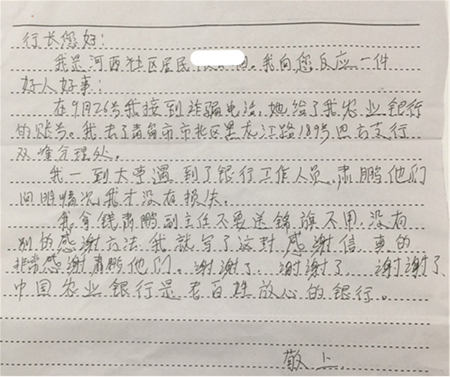 行长您好:
我是河西社区居民 向您反应一件
好人好事:
在9月26号我接到诈骗电话,她给了我农业银行
的账号。我去了青岛市市北区黑龙江路189号四方支行
双峰分理处。
我一到大堂遇到了银行工作人员,肃鹏他们
问明情况我才没有损失。
我拿钱肃鹏副主任不要送锦旗不用,没有
别的感谢方法,我就写了这封感谢信,真的
非常感谢肃鹏他们。谢谢了、谢谢了、谢谢了、
中国农业银行是老百姓放心的银行。
敬上